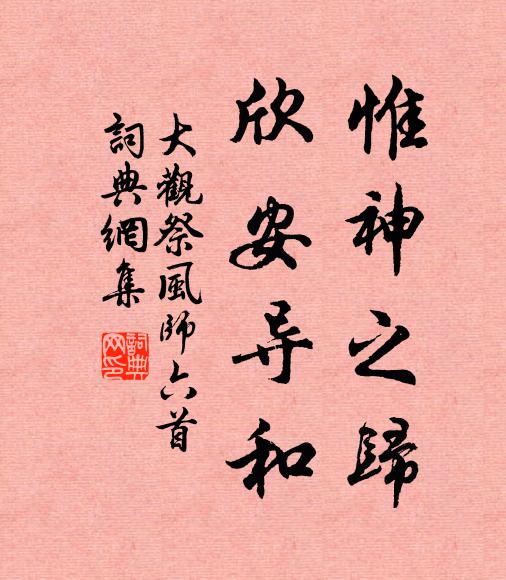 惟神之歸
欣安导和
大觀祭風師六首
詞典網集
詞典网印